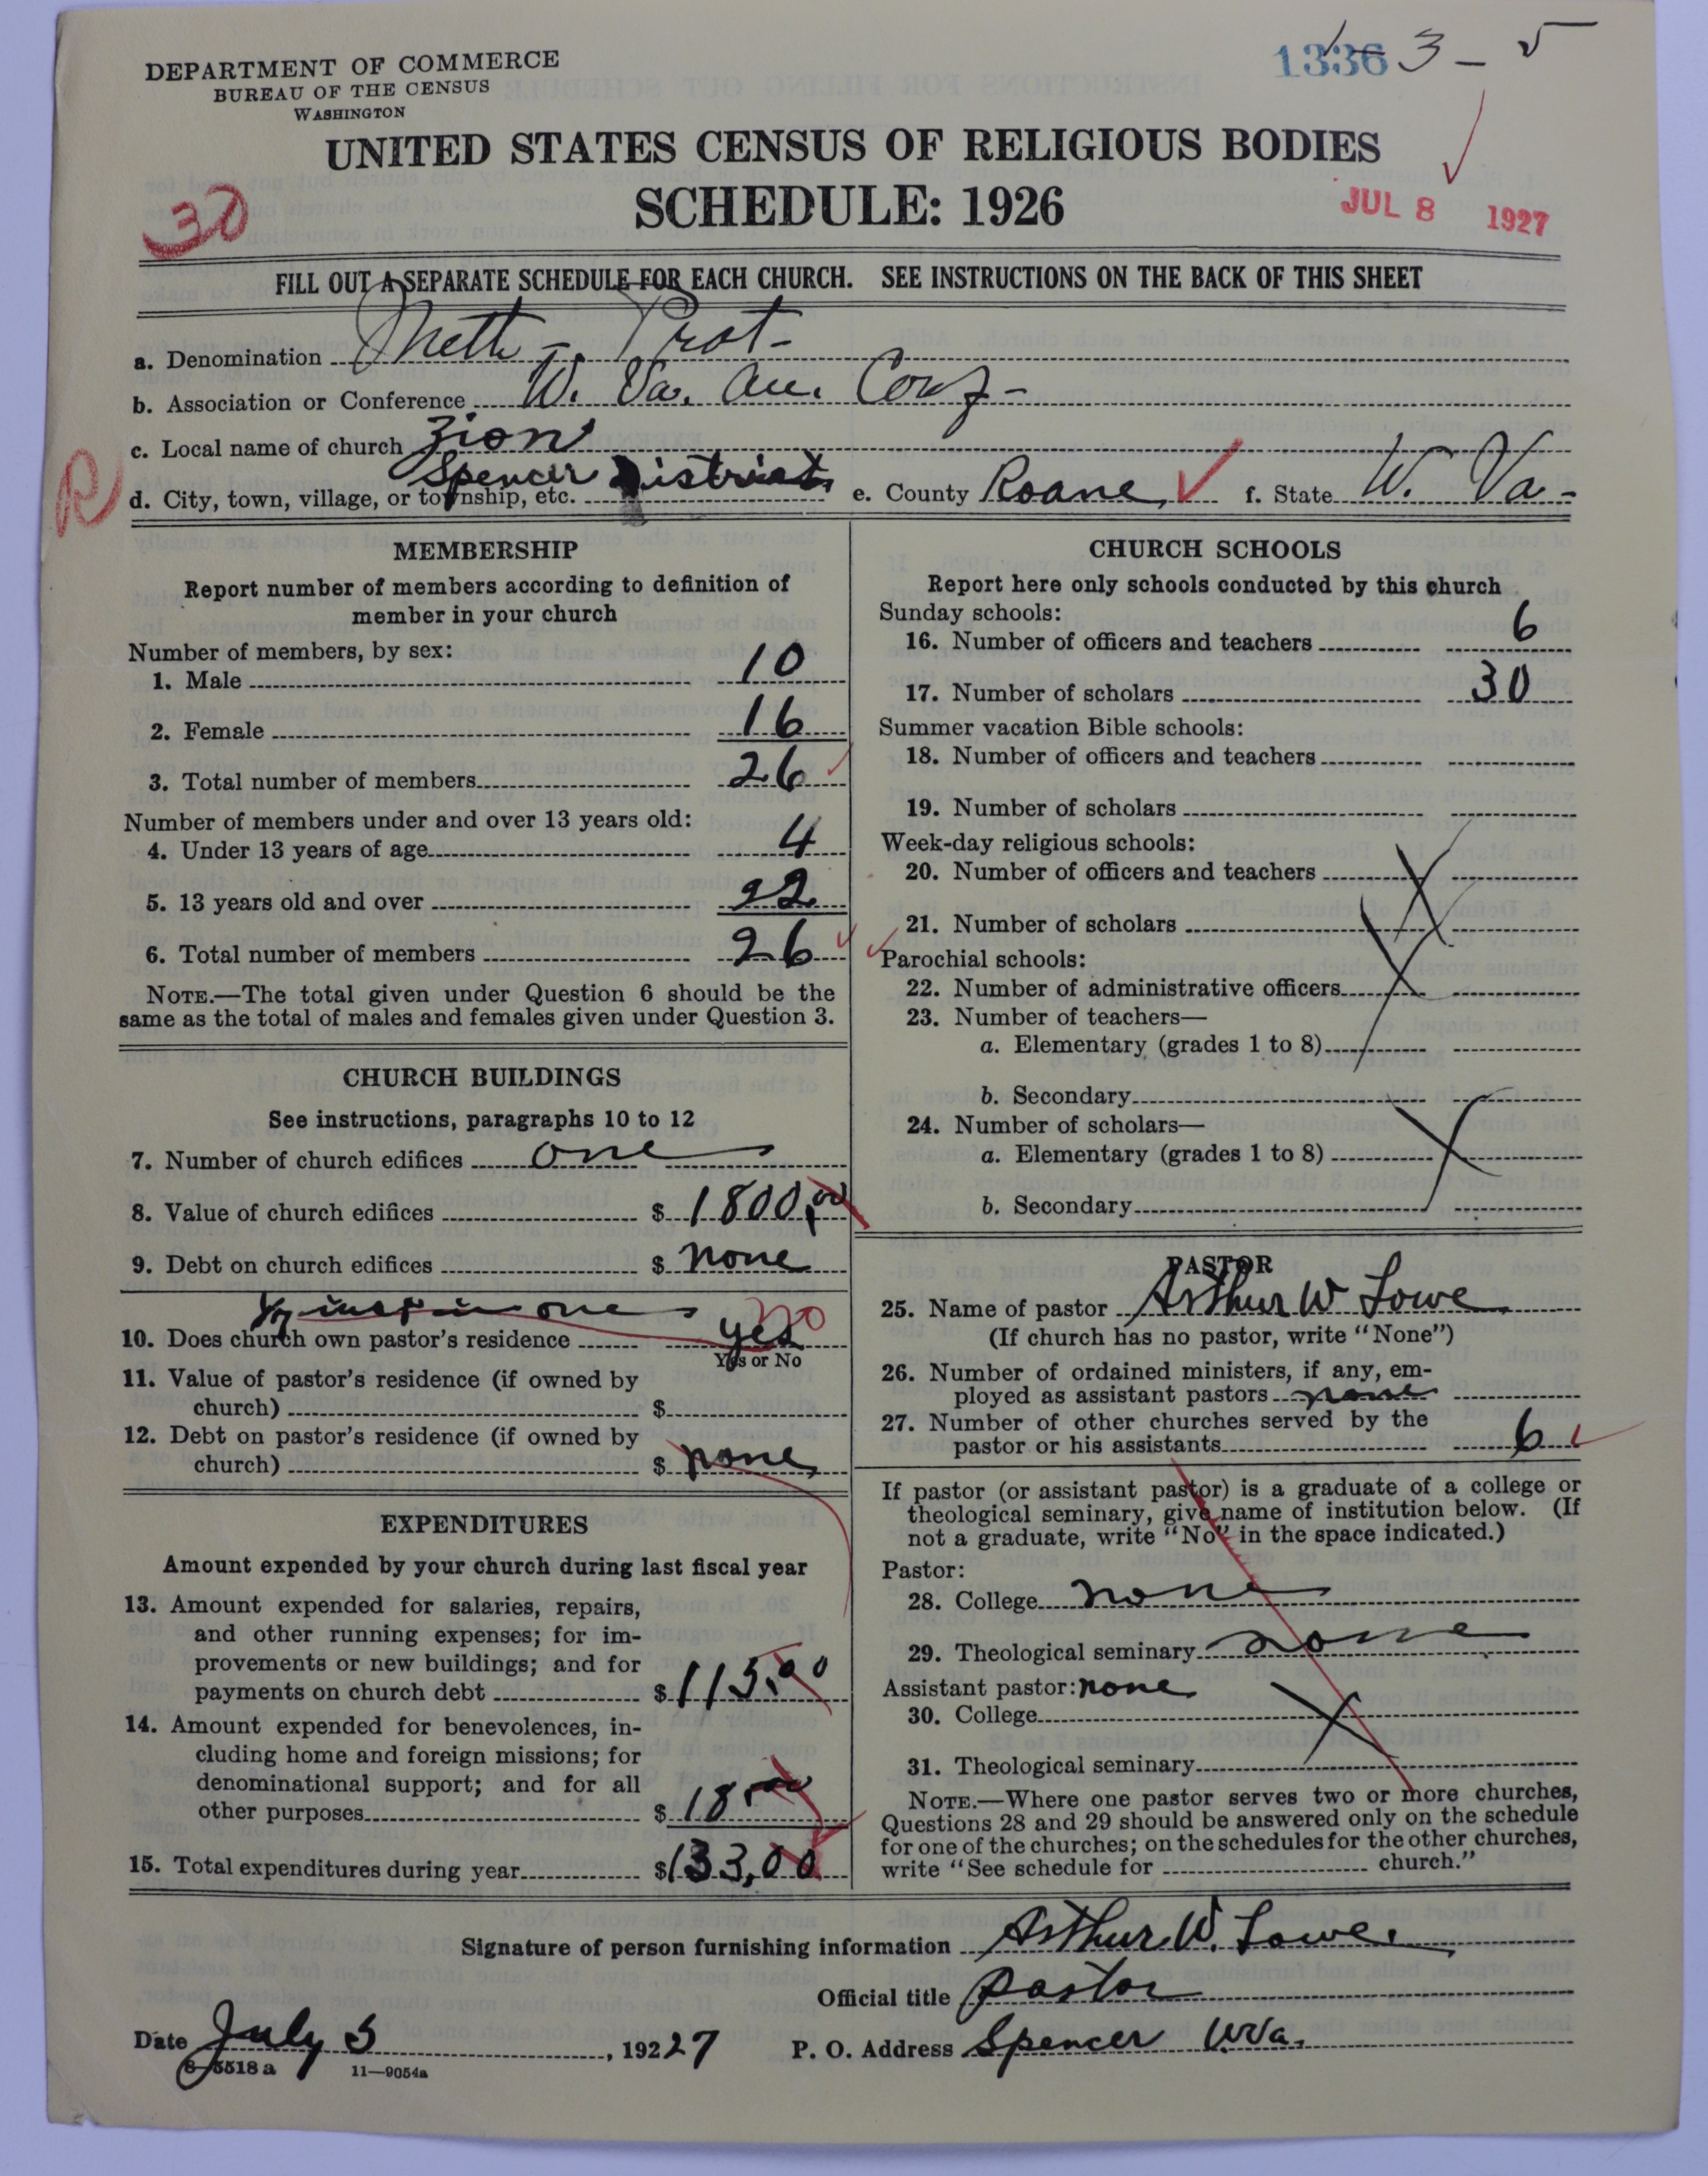 DEPARTMENT OF COMMERCE
BUREAU OF THE CENSUS
WASHINGTON
1336 3 – 5
UNITED STATES CENSUS OF RELIGIOUS BODIES
SCHEDULE: 1926
30
JUL 8 1927
FILL OUT A SEPARATE SCHEDULE FOR EACH CHURCH. SEE INSTRUCTIONS ON THE BACK OF THIS SHEET
a. Denomination Meth - Prot -
b. Association or Conference W. Va. An. Conf -
c. Local name of church Zion
R
d. City, town, village, or township, etc. Spencer District e. County Roane f. State W. Va -
MEMBERSHIP
Report number of members according to definition of
member in your church
Number of members, by sex:
1. Male 10
2. Female 16
3. Total number of members 26
Number of members under and over 13 years old:
4. Under 13 years of age 4
5. 13 years old and over 22
6. Total number of members 26
NOTE.—The total given under Question 6 should be the
same as the total of males and females given under Question 3.
CHURCH BUILDINGS
See instructions, paragraphs 10 to 12
7. Number of church edifices one
8. Value of church edifices $ 1800,00
9. Debt on church edifices $ none
one
10. Does church own pastor's residence yes no
Yes or No
11. Value of pastor's residence (if owned by
church) $
12. Debt on pastor's residence (if owned by
church) $ none
EXPENDITURES
Amount expended by your church during last fiscal year
13. Amount expended for salaries, repairs,
and other running expenses; for im-
provements or new buildings; and for
payments on church debt $ 115.00
14. Amount expended for benevolences, in-
cluding home and foreign missions; for
denominational support; and for all
other purposes $ 18.00
15. Total expenditures during year $ 133,00
CHURCH SCHOOLS
Report here only schools conducted by this church
Sunday schools:
16. Number of officers and teachers 6
17. Number of scholars 30
Summer vacation Bible schools:
18. Number of officers and teachers
19. Number of scholars
Week-day religious schools:
20. Number of officers and teachers
21. Number of scholars
Parochial schools:
22. Number of administrative officers
23. Number of teachers—
a. Elementary (grades 1 to 8)
b. Secondary
24. Number of scholars—
a. Elementary (grades 1 to 8)
b. Secondary
PASTOR
25. Name of pastor Arthur W Lowe
(If church has no pastor, write "None")
26. Number of ordained ministers, if any, em-
ployed as assistant pastors none
27. Number of other churches served by the
pastor or his assistants 6
If pastor (or assistant pastor) is a graduate of a college or
theological seminary, give name of institution below. (If
not a graduate, write "No" in the space indicated.)
Pastor:
28. College none
29. Theological seminary none
Assistant pastor: none
30. College
31. Theological seminary
NOTE.—Where one pastor serves two or more churches,
Questions 28 and 29 should be answered only on the schedule
for one of the churches; on the schedules for the other churches,
write "See schedule for church."
Signature of person furnishing information Arthur W. Lowe.
Official title pastor
Date July 5, 19227 P. O. Address Spencer W Va.
8—5518 a 11—9054a